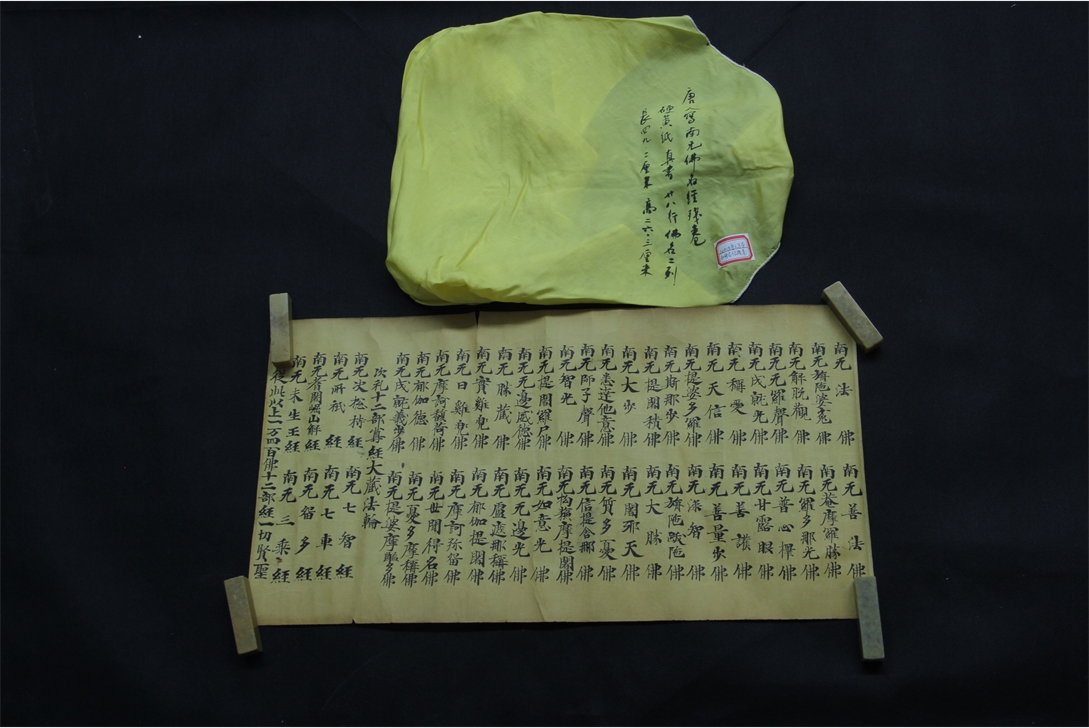 唐寫南无佛名經殘卷
硬黄紙 真書 廿八行 佛名二列
長四九·二厘米 高二六·三厘米
南无法佛 南无善法佛
南无旃陁婆佛 南无菴摩羅勝佛
南无解脱觀佛 南无羅多那光佛
南无羅聲佛 南无善心擇佛
南无成就光佛 南无甘露眼佛
南无稱愛佛 南无善護佛
南无天信佛 南无善量步佛
南无提婆多羅佛 南无深智佛
南无斯那步佛 南无旃陁跋陁佛
南无提闍積佛 南无大勝佛
南无大步佛 南无闍邪天佛
南无悉達他意佛 南无質多憂佛
南无師子聲佛 南无信提舍那佛
南无智光佛 南无摩提闍佛
南无提闍羅尸佛 南无如意光佛
南无无邊威德佛 南无无邊光佛
南无勝藏佛 南无稱佛
南无寶雞兜佛 南无郁伽提闍佛
南无日雞兜佛 南无摩訶弥留佛
南无摩訶佛 南无世間得名佛
南无郁伽德佛 南无憂多摩稱佛
南无成就義步佛 南无提婆摩多佛
次礼十二部尊經大藏法輪
南无次經 南无七智經
南无經 南无七車經
南无耆闍崛山解經 南无多經
南无未生王經 南无三乘經
從此以上一万四百佛十二部經一切賢聖